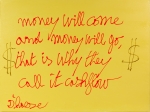 money will come
and money will go,
$ that is why they $
call it cashflow